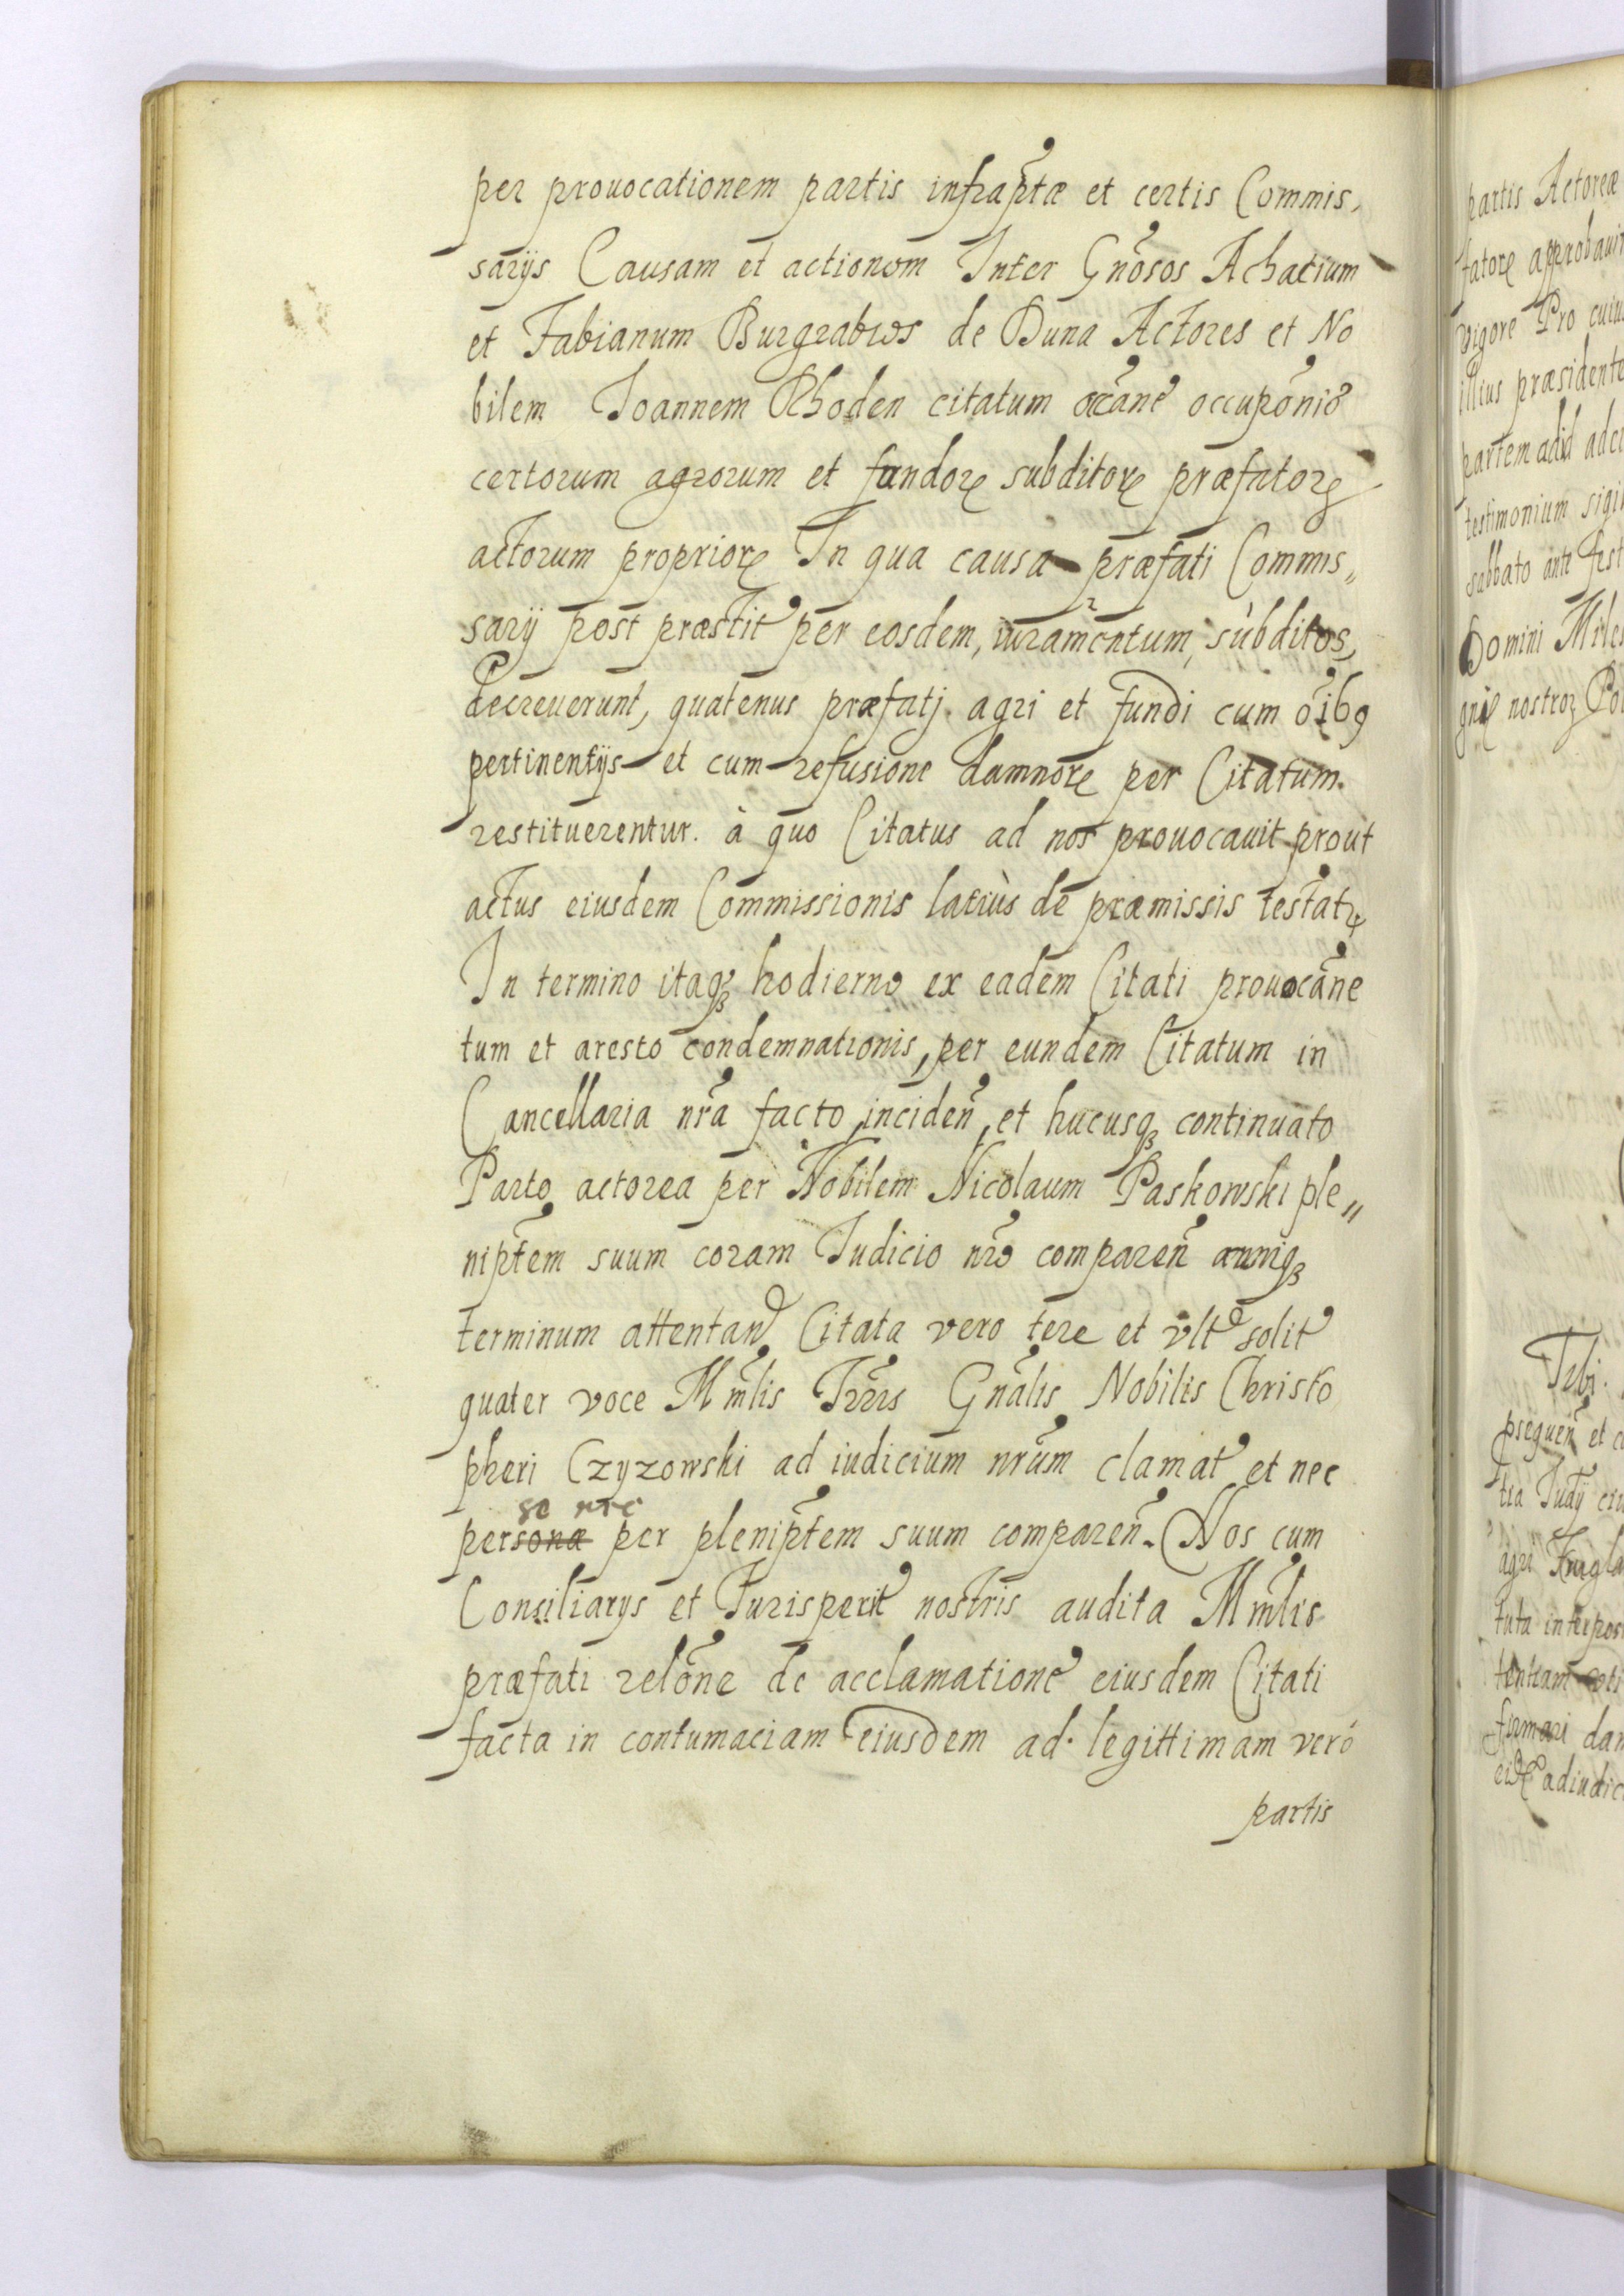 per prouocationem partis infraptæ et certis Commis,
sarijs Causam et actionem Inter Gnosos Achatium
et Fabianum Burgrabios de Duna Actores et No
bilem Joannem Rhoden citatum occane occuponis
certorum agrorum et fundorꝝ subditorꝝ præfatorꝝ
actorum propriorꝝ In qua causa præfati Commis„
sarij post præstit per eosdem, iuramentum, subditos,
decreuerunt, quatenus præfatj agri et fundi cum oibꝯ
pertinentijs et cum refusione damnorꝝ per Citatum.
restituerentur. à quo Citatus ad nos prouocauit prout
actus eiusdem Commissionis latiùs de præmissis testatꝝ
In termino itaqꝫ hodierno ex eadem Citati prouocane
tum et aresto condemnationis, per eundem Citatum in
Cancellaria nra facto, inciden, et hucusqꝫ continuato
Parte actorea per Nobilem Nicolaum Paskowski ple„
niptem suum coram Judicio nro comparen
terminum attentan Citata vero tere et vlt solit
quater voce Mmlis Trris Gnalis Nobilis Christo
pheri Czyzowski ad iudicium nrum clamat et nec
se nec
persona per pleniptem suum comparen. Nos cum
Consiliarys et Jurisperit nostris audita Mmlis
præfati relone de acclamatione eiusdem Citati
facta in contumaciam eiusdem ad legittimam vero
partis
partis Actoreæ
fatorꝝ approbaui
vigore Pro cuiu
illius præsidente
partem adid adci
testimonium sigi
sabbato ante fest
Domini Miles
nostroꝝ
psequen et
tuta interpos
firmari dam
adiudic